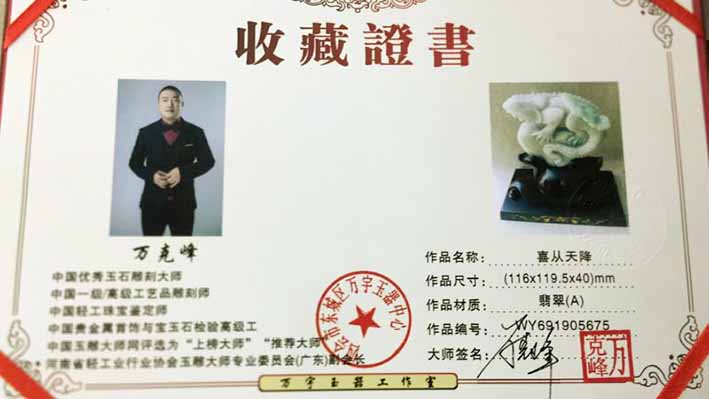 收藏證書
万克峰
中国优秀玉石雕刻大师
中国一级/高级工艺品雕刻师
中国轻工珠宝鉴定师
中国贵金属首饰与宝玉石检验高级工
中国玉雕大师网评选为“上榜大师”“推荐大师”
河南省轻工业行业协会玉雕大师专业委员会(广东)副会长
作品名称： 喜从天降
作品尺寸： (116x119.5x40)mm
作品材质： 翡翠(A)
作品编号： WY691905675
大师签名：
万克峰
东城区万宇玉器中心
万宇玉器工作室